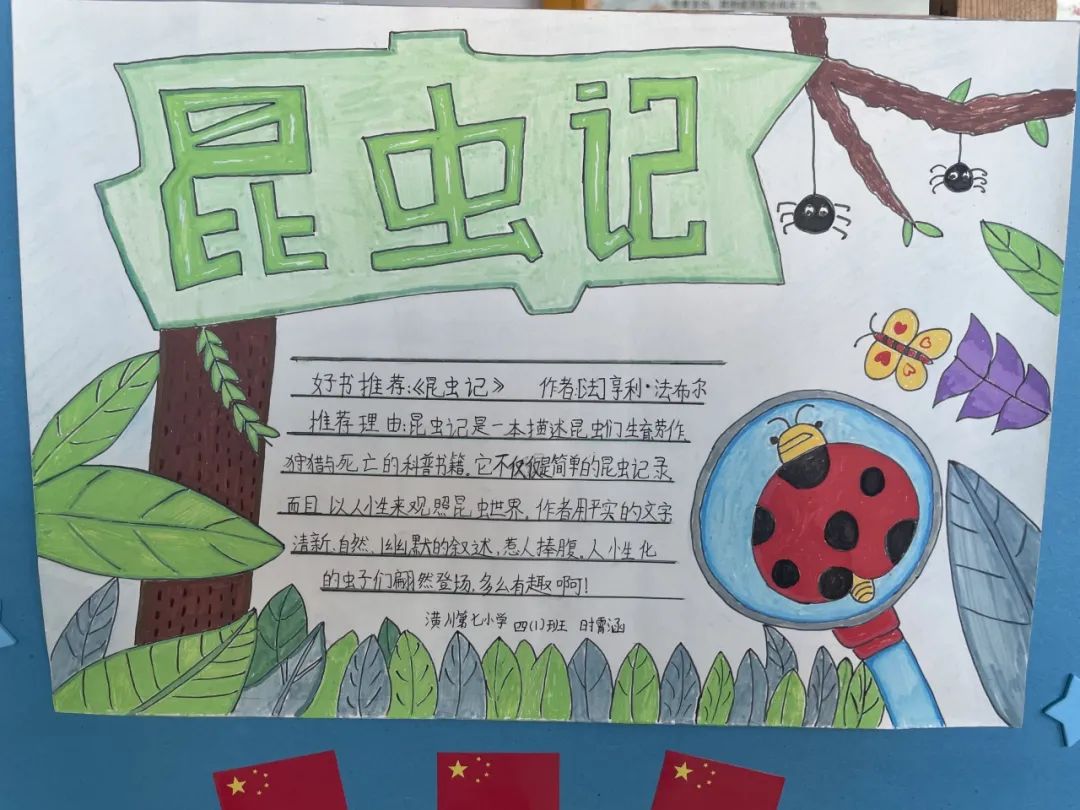 昆虫记
好书推荐:《昆虫记》 作者:[法]亨利·法布尔
推荐理由:昆虫记是一本描述昆虫们生育劳作
狩猎与死亡的科普书籍。它不仅仅是简单的昆虫记录,
而且以人性来观照昆虫世界。作者用平实的文字
清新、自然、幽默的叙述,惹人捧腹。人性化
的虫子们翩然登场,多么有趣啊!
潢川第七小学 四(1)班 时霄涵